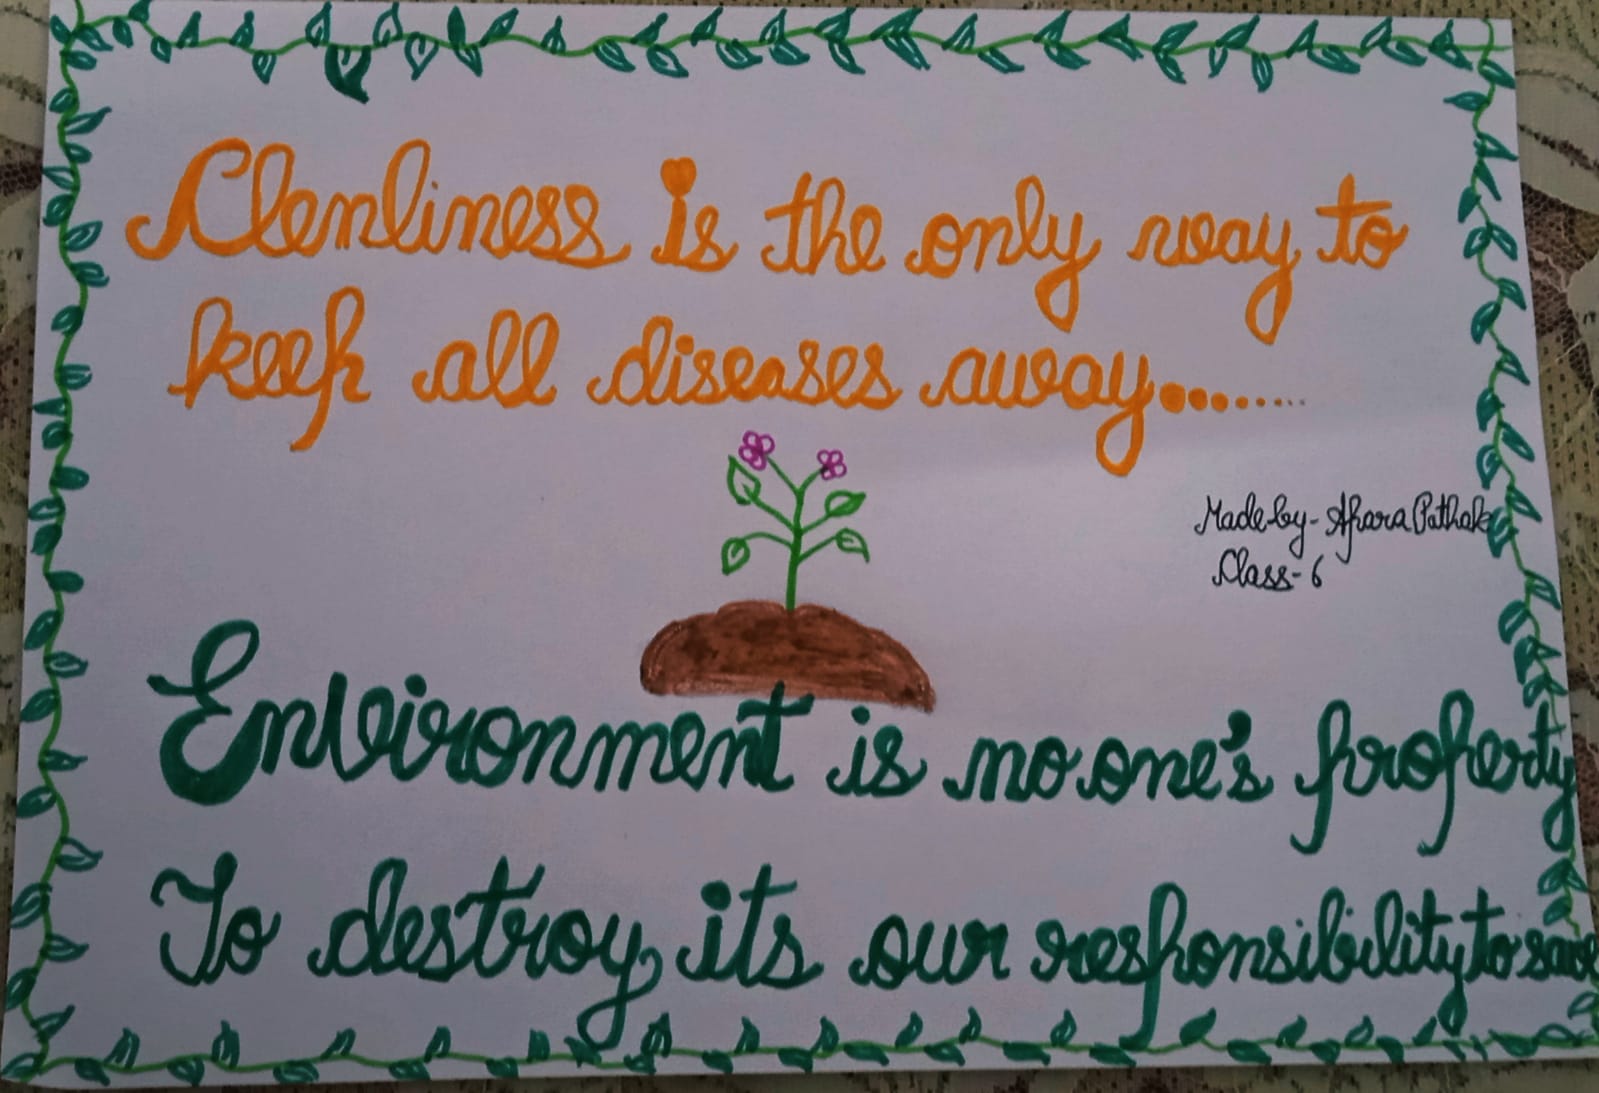 Clenliness is the only way to
keep all diseases away........
Made by- Apara Pathak
Class- 6
Environment is no one's property
To destroy, its our responsibility to save